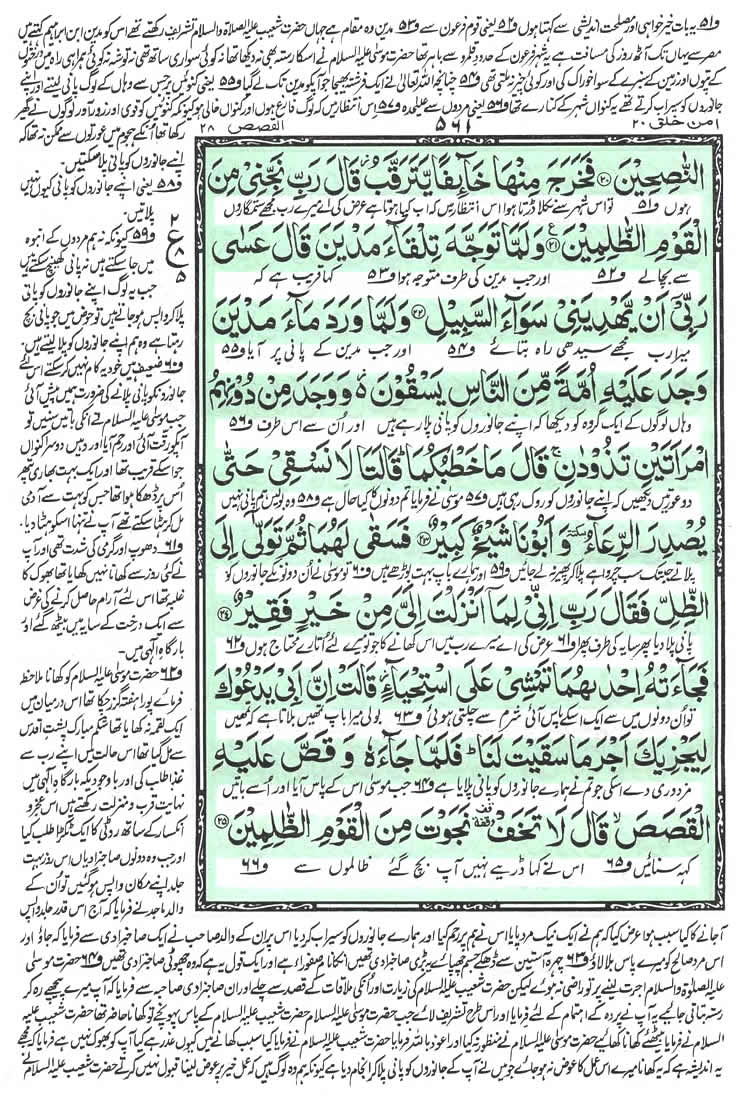 و۵۱ یہ بات خیرخواہی اور مصلحت اندیشی سے کہتا ہوں و۵۲ یعنی قوم فرعون سے و۵۳ مدین وہ مقام ہے جہاں حضرت شعیب علیہ الصلوٰۃ والسلام تشریف رکھتے تھے اس کو مدین ابن ابراہیم کہتے ہیں
مصر سے یہاں تک آٹھ روز کی مسافت ہے یہ شہر فرعون کے حدود قلمرو سے باہر تھا حضرت موسیٰ علیہ السلام نے اسکا رستہ بھی نہ دیکھا تھا نہ کوئی سواری ساتھ تھی نہ توشہ نہ کوئی ہمراہی راہ میں درختوں
کے پتوں اور زمین کے سبزے کے سوا خوراک کی اور کوئی چیز نہ ملتی تھی و۵۴ چنانچہ اللہ تعالیٰ نے ایک فرشتہ بھیجا جو آپکو مدین تک لے گیا و۵۵ یعنی کنوئیں پر جس سے وہاں کے لوگ پانی لیتے اور اپنے
جانوروں کو سیراب کرتے تھے یہ کنواں شہر کے کنارے تھا و۵۶ یعنی مردوں سے علیٰحدہ و۵۷ اس انتظار میں کہ لوگ فارغ ہوں اور کنواں خالی ہو کیونکہ کنوئیں کو قوی اور زور آور لوگوں نے گھیر
امن خلق ۲۰
۵۶۱
القصص ۲۸
النّٰصِحِیْنَ ۝۲۰ فَخَرَجَ مِنْهَا خَآئِفًا یَّتَرَقَّبُ ۫ قَالَ رَبِّ نَجِّنِیْ مِنَ
ہوں و۵۱ تو اس شہر سے نکلا ڈرتا ہوا اس انتظار میں کہ اب کیا ہوتا ہے عرض کی اے میرے رب مجھے ستمگاروں
الْقَوْمِ الظّٰلِمِیْنَ ۝۲۱ وَلَمَّا تَوَجَّهَ تِلْقَآءَ مَدْیَنَ قَالَ عَسٰی
سے بچا لے و۵۲ اور جب مدین کی طرف متوجہ ہوا و۵۳ کہا قریب ہے کہ
رَبِّیْۤ اَنْ یَّهْدِیَنِیْ سَوَآءَ السَّبِیْلِ ۝۲۲ وَلَمَّا وَرَدَ مَآءَ مَدْیَنَ
میرا رب مجھے سیدھی راہ بتائے و۵۴ اور جب مدین کے پانی پر آیا و۵۵
وَجَدَ عَلَیْهِ اُمَّةً مِّنَ النَّاسِ یَسْقُوْنَ ۬ وَوَجَدَ مِنْ دُوْنِهِمُ
وہاں لوگوں کے ایک گروہ کو دیکھا کہ اپنے جانوروں کو پانی پلا رہے ہیں اور اُن سے اس طرف و۵۶
امْرَاَتَیْنِ تَذُوْدٰنِ ۚ قَالَ مَا خَطْبُكُمَا ؕ قَالَتَا لَا نَسْقِیْ حَتّٰی
دو عورتیں دیکھیں کہ اپنے جانوروں کو روک رہی ہیں و۵۷ موسیٰ نے فرمایا تم دونوں کا کیا حال ہے و۵۸ وہ بولیں ہم پانی نہیں
یُصْدِرَ الرِّعَآءُ سكتة وَاَبُوْنَا شَیْخٌ كَبِیْرٌ ۝۲۳ فَسَقٰی لَهُمَا ثُمَّ تَوَلّٰۤی اِلَی
پلاتے جب تک سب چرواہے پلا کر پھیر نہ لے جائیں و۵۹ اور ہمارے باپ بہت بوڑھے ہیں و۶۰ تو موسیٰ نے اُن دونوں کے جانوروں کو
الظِّلِّ فَقَالَ رَبِّ اِنِّیْ لِمَاۤ اَنْزَلْتَ اِلَیَّ مِنْ خَیْرٍ فَقِیْرٌ ۝۲۴
پانی پلا دیا پھر سایہ کی طرف پھرا و۶۱ عرض کی اے میرے رب میں اس کھانے کا جو تو میرے لئے اُتارے محتاج ہوں و۶۲
فَجَآءَتْهُ اِحْدٰىهُمَا تَمْشِیْ عَلَی اسْتِحْیَآءٍ ۫ قَالَتْ اِنَّ اَبِیْ یَدْعُوْكَ
تو اُن دونوں میں سے ایک اسکے پاس آئی شرم سے چلتی ہوئی و۶۳ بولی میرا باپ تمھیں بلاتا ہے کہ تمھیں
لِیَجْزِیَكَ اَجْرَ مَا سَقَیْتَ لَنَا ؕ فَلَمَّا جَآءَهٗ وَقَصَّ عَلَیْهِ
مزدوری دے اسکی جو تم نے ہمارے جانوروں کو پانی پلایا ہے و۶۴ جب موسیٰ اس کے پاس آیا اور اُسے باتیں
الْقَصَصَ ۙ قَالَ لَا تَخَفْ وقفة نَجَوْتَ مِنَ الْقَوْمِ الظّٰلِمِیْنَ ۝۲۵
کہہ سنائیں و۶۵ اس نے کہا ڈریے نہیں آپ بچ گئے ظالموں سے و۶۶
رکھا تھا اُنکے ہجوم میں عورتوں سے ممکن نہ تھا کہ
اپنے جانوروں کو پانی پلا سکتیں۔
و۵۸ یعنی اپنے جانوروں کو پانی کیوں نہیں
پلاتیں۔
۲
ع
۸
۵
و۵۹ کیونکہ نہ ہم مردوں کے انبوہ
میں جا سکتے ہیں نہ پانی کھینچ سکتے ہیں
جب یہ لوگ اپنے جانوروں کو پانی
پلا کر واپس ہو جاتے ہیں تو حوض میں جو پانی بچ
رہتا ہے وہ ہم اپنے جانوروں کو پلا لیتے ہیں۔
و۶۰ ضعیف ہیں خود یہ کام نہیں کر سکتے اس لئے
جانوروں کو پانی پلانے کی ضرورت ہمیں پیش آئی
جب موسیٰ علیہ السلام نے انکی باتیں سنیں تو
آپکو رقت آئی اور رحم آیا اور وہیں دوسرا کنواں
جو اسکے قریب تھا اور ایک بہت بھاری پتھر
اُس پر ڈھکا ہوا تھا جس کو بہت سے آدمی
مل کر ہٹا سکتے تھے آپ نے تنہا اسکو ہٹا دیا۔
و۶۱ دھوپ اور گرمی کی شدت تھی اور آپ
نے کئی روز سے کھانا نہیں کھایا تھا بھوک کا
غلبہ تھا اس لئے آرام حاصل کرنے کی غرض
سے ایک درخت کے سایہ میں بیٹھ گئے اور
بارگاہِ الٰہی میں۔
و۶۲ حضرت موسیٰ علیہ السلام کو کھانا ملاحظہ
فرمائے پورا ہفتہ گزر چکا تھا اس درمیان میں
ایک لقمہ نہ کھایا تھا شکم مبارک پشت اقدس
سے مل گیا تھا اس حالت میں اپنے رب سے
غذا طلب کی اور باوجودیکہ بارگاہِ الٰہی میں
نہایت قرب و منزلت رکھتے ہیں اس عجز و
انکسار کے ساتھ روٹی کا ایک ٹکڑا طلب کیا
اور جب وہ دونوں صاحبزادیاں اس روز بہت
جلد اپنے مکان واپس ہو گئیں تو اُن کے
والد ماجد نے فرمایا کہ آج اس قدر جلد واپس
آ جانے کا کیا سبب ہوا عرض کیا کہ ہم نے ایک نیک مرد پایا اس نے ہم پر رحم کیا اور ہمارے جانوروں کو سیراب کر دیا اس پر ان کے والد صاحب نے ایک صاحبزادی سے فرمایا کہ جاؤ اور
اس مرد صالح کو میرے پاس بلا لاؤ و۶۳ چہرہ آستین سے ڈھکے جسم چھپائے یہ بڑی صاحبزادی تھیں انکا نام صفوراء ہے اور ایک قول یہ ہے کہ وہ چھوٹی صاحبزادی تھیں و۶۴ حضرت موسیٰ
علیہ الصلوٰۃ والسلام اجرت لینے پر تو راضی نہ ہوئے لیکن حضرت شعیب علیہ السلام کی زیارت اور انکی ملاقات کے قصد سے چلے اور ان صاحبزادی صاحبہ سے فرمایا کہ آپ میرے پیچھے رہ کر
رستہ بتاتی جائیے یہ آپ نے پردہ کے اہتمام کے لئے فرمایا اور اس طرح تشریف لائے جب حضرت موسیٰ علیہ السلام حضرت شعیب علیہ السلام کے پاس پہونچے تو کھانا حاضر تھا حضرت شعیب علیہ
السلام نے فرمایا بیٹھئے کھانا کھائیے حضرت موسیٰ علیہ السلام نے منظور نہ کیا اور اعوذ باللہ فرمایا حضرت شعیب علیہ السلام نے فرمایا کیا سبب کھانے میں کیوں عذر ہے کیا آپ کو بھوک نہیں ہے فرمایا کہ مجھے
یہ اندیشہ ہے کہ یہ کھانا میرے اس عمل کا عوض نہ ہو جائے جو میں نے آپ کے جانوروں کو پانی پلا کر انجام دیا ہے کیونکہ ہم وہ لوگ ہیں کہ عمل خیر پر عوض لینا قبول نہیں کرتے حضرت شعیب علیہ السلام نے